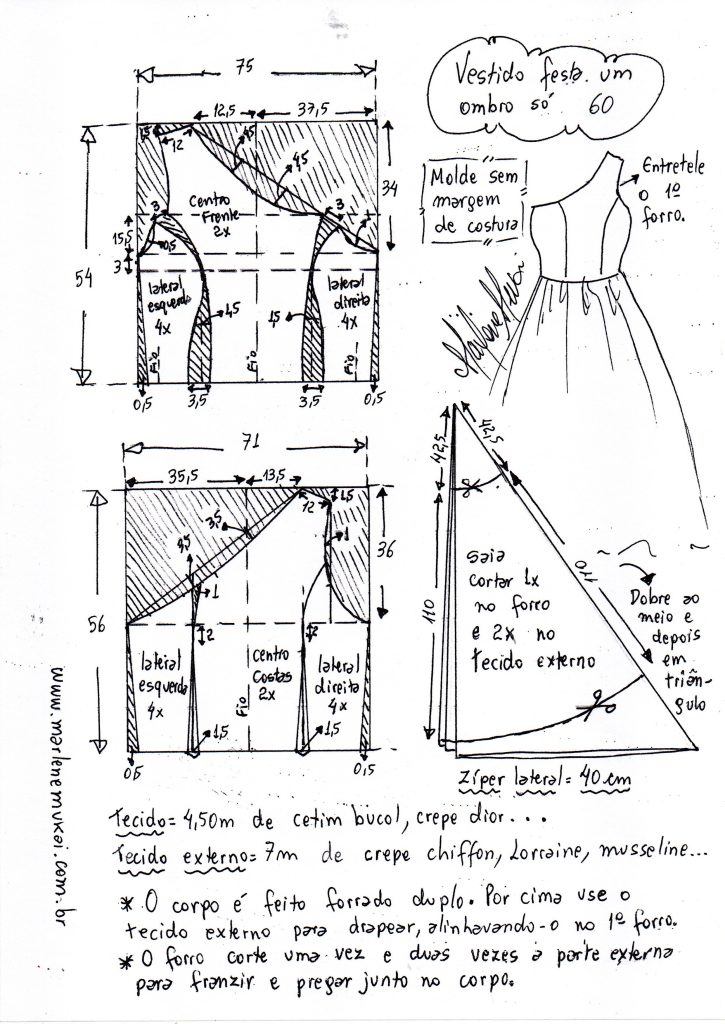 75
Vestido festa um
ombro só 60
12,5
37,5
1,5
12
4,5
4,5
34
Molde sem
margem
de costura
Entretele
o 1º
forro.
Centro
Frente
2x
3
3
15,5
0,5
1
54
3
lateral
esquerda
4x
lateral
direita
4x
1,5
1,5
Fio
Fio
Fio
0,5
3,5
3,5
0,5
71
35,5
13,5
42,5
42,5
12
1,5
3,5
1
36
3,5
1
56
2
2
110
110
saia
cortar 1x
no forro
e 2x no
tecido externo
Dobre ao
meio e
depois
em
triân-
gulo
lateral
esquerda
4x
centro
Costas
2x
lateral
direita
4x
Fio
1,5
1,5
0,5
0,5
Zíper lateral = 40 cm
www.marlenemukai.com.br
Tecido = 4,50m de cetim bucol, crepe dior...
Tecido externo = 7m de crepe chiffon, Lorraine, musseline...
* O corpo é feito forrado duplo. Por cima use o
tecido externo para drapear, alinhavando-o no 1º forro.
* O forro corte uma vez e duas vezes a parte externa
para franzir e pregar junto no corpo.